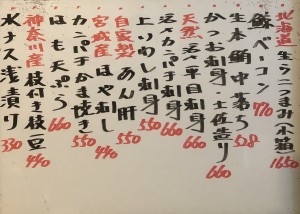 北海道 生うにつまみ(小箱) 1650
鯨ベーコン 770
生本鮪中落ち 528
かつお刺身 土佐造り 660
天然 活〆平目刺身 660
活〆カンパチ刺身 550
上いわし刺身 550
自家製 あん肝 550
宮城産 ほや刺し 440
カンパチかま焼き 550
はも天ぷら 660
神奈川産 枝付き枝豆 440
水ナス浅漬り 330